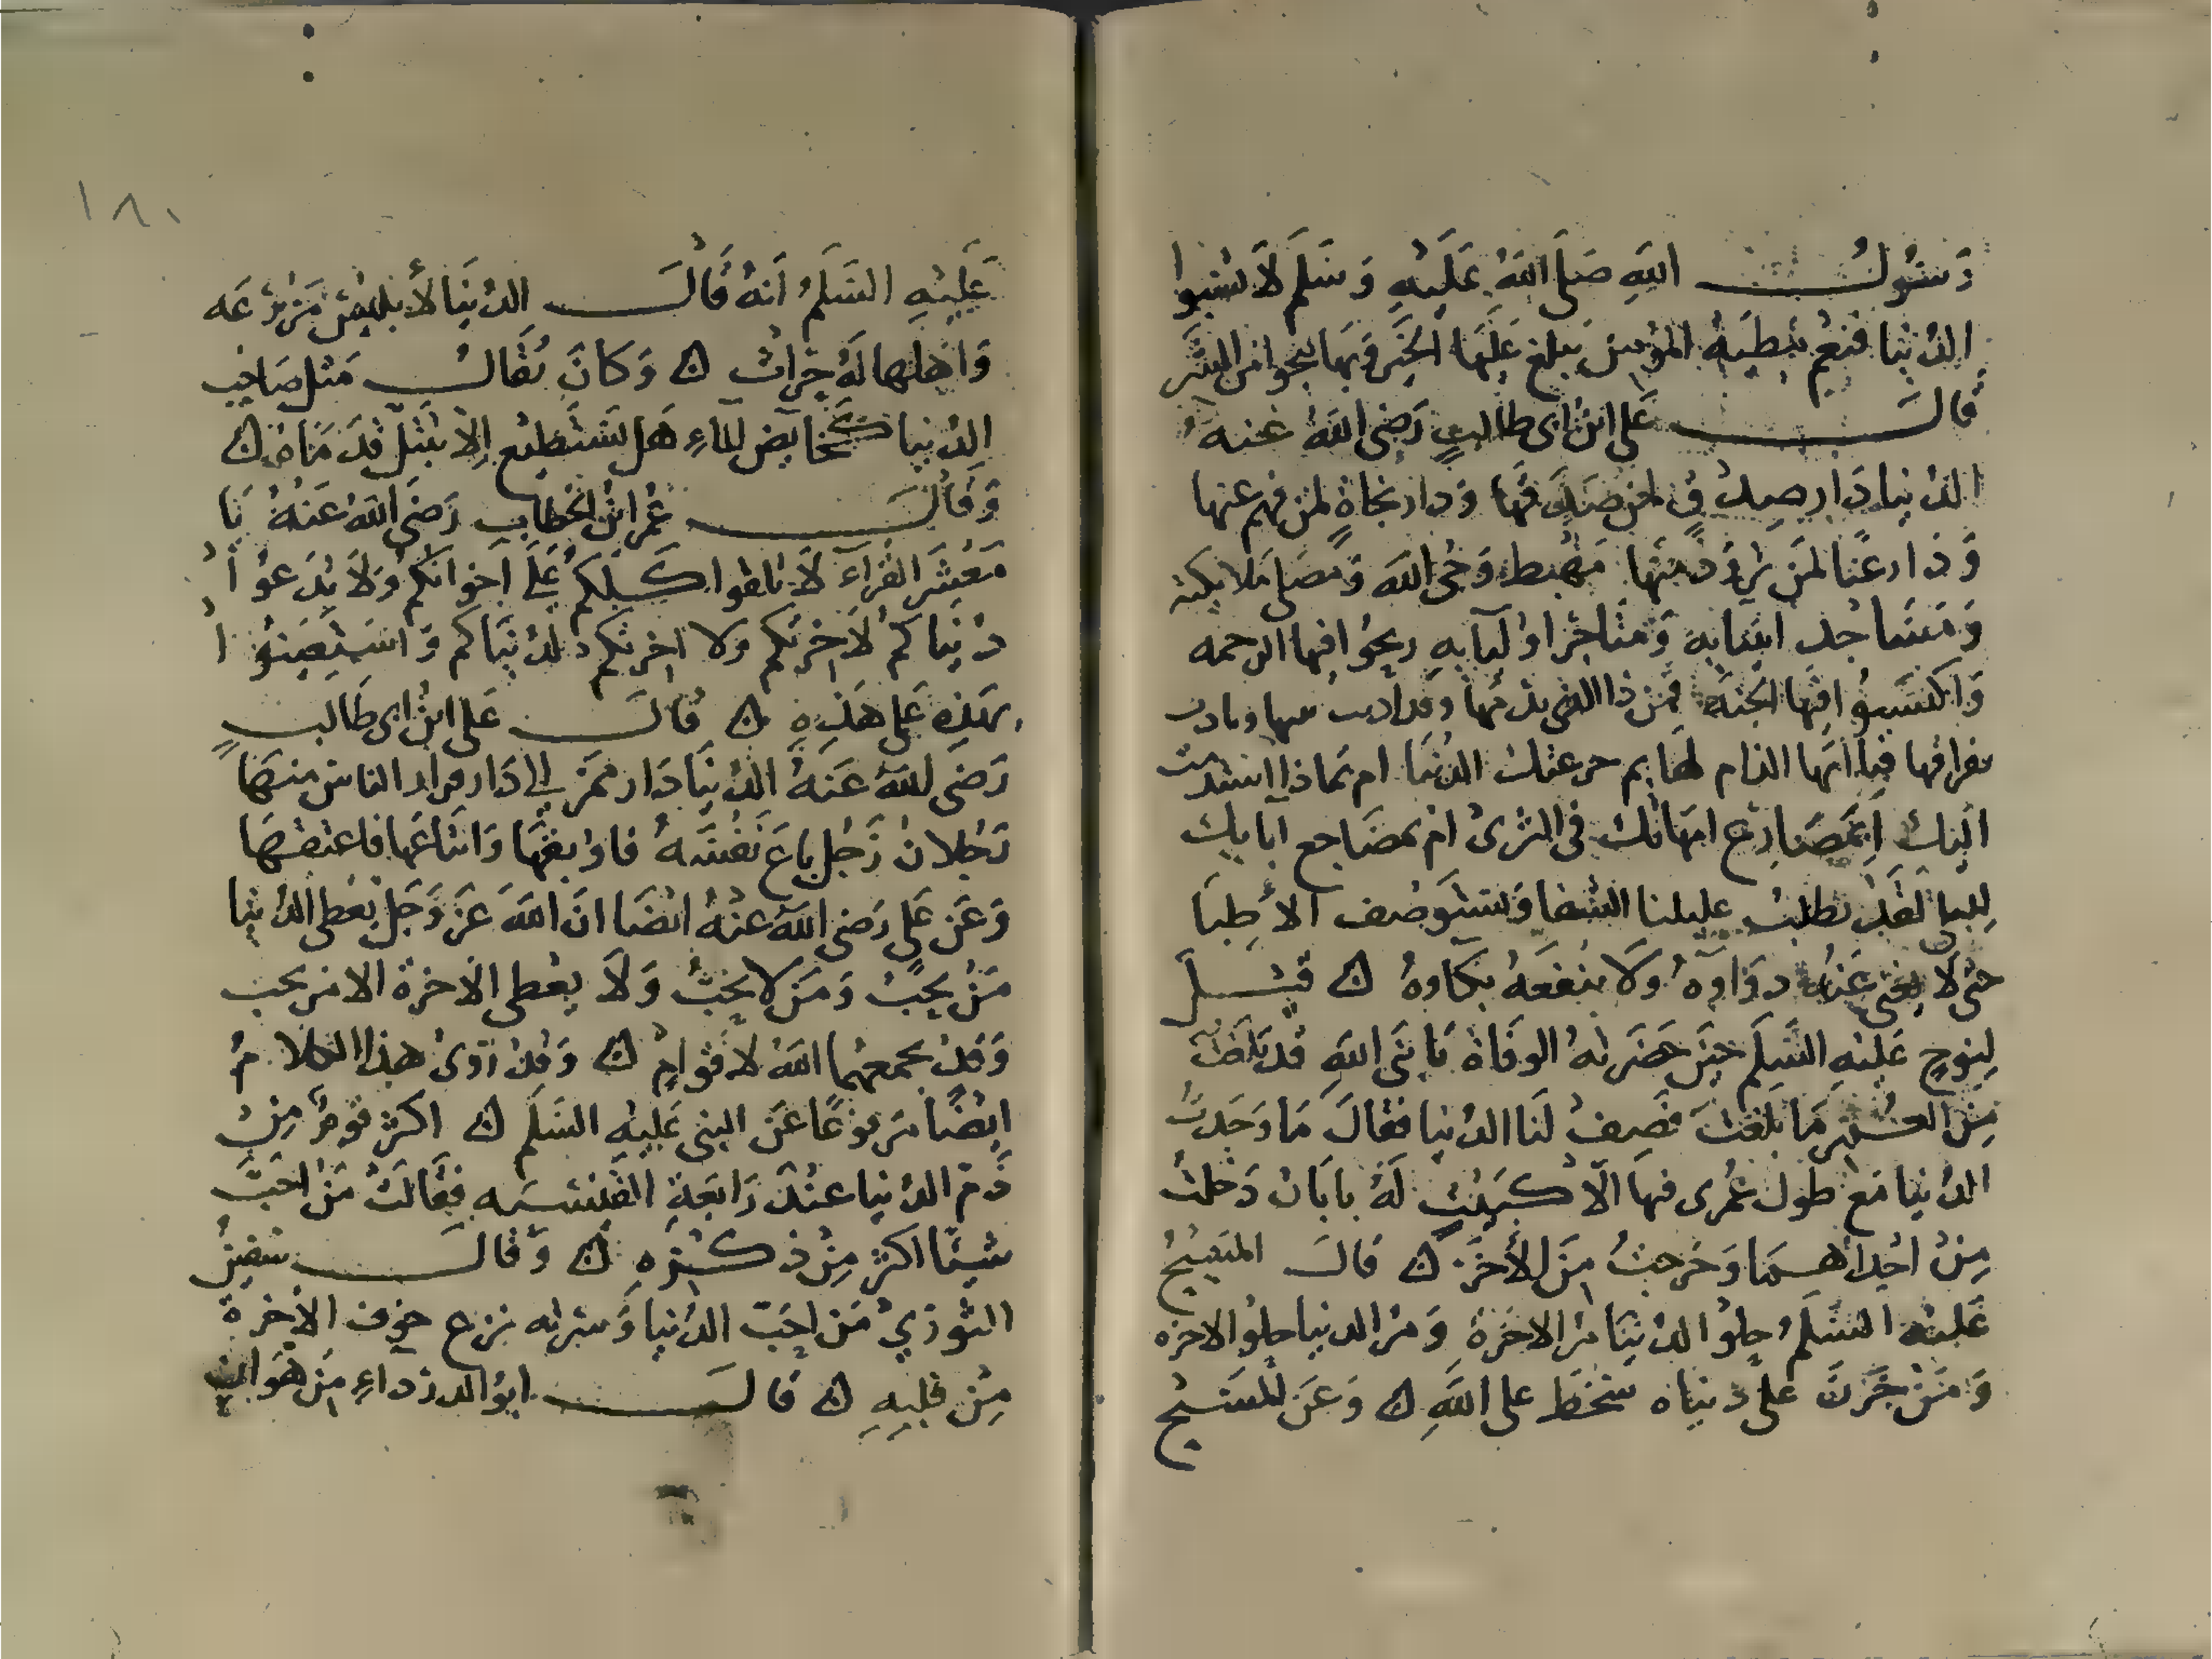 رَسُولُ اللهِ صَلَى اللهُ عَلَيْهِ وَسَلَم لاَ تسُبوا
الدُنيا فنعْم مَطِيَةُ المؤمن يَبلغ عَليَها الخَيَر وَبهَا ينجوا من الشَر
قالَ عَلى ابنُ ابى طالبٍ رَضى اللهُ عنهُ
الدُنيا دَار صِدْقٍ لمن صَدَقَ فيَها وَدار نجاةٍ لمن فهم عنها
وَدَار غنًا لمَن تزَوَدَ مِنهَا مَهْبط وَحْى الله وَمصَلى ملايكته
وَمَسَاجد انبيَايه وَمتَاجرَ اوليَآيهِ ربحُوا فيها الرحمه
وَاكتسَبوُا فيْها الجنَة فمَن ذا الذى يذمُها وقد اذنت ببينها ونادت
بفراقها فيَا ايَها الذام لهَا بم خدعتك الدُنيَا ام بمَاذا استذمت
اليْك اَبمصَارع امهَاتك فى الثرىْ امْ بمضَاجع آبايك
لِلبِلى لقَدْ تطلبُ عليلنا الشفا وَتستَوصْف الأطِبَا
حتى لاَ يغنى عَنهُ دوَآوهُ وَلا ينفعَهُ بكاوهُ ن قيْل
لِنوحٍ عَليْهِ السَلَم حيَن حَضَرَتهُ الوفَاة يَا نبَى اللهِ قد بَلغْتَ
مِنَ العُمْر مَا بلغتَ فصِفْ لَنا الدُنيا فقالَ مَا وَجَدتُ
الدُنيا مَع طول عُمْرى فيهَا الاّ كبَيْتٍ لَهُ بابَان دَخلتُ
مِنْ احْدِاهمَا وَخرَجتُ مِنَ الأخَر ن قالَ المَسِيْحُ
عَليْه السَلَمُ حلوُ الدُنيَا مُر الاخرَة وَمُر الدنيا حلوُ الاخره
وَمَنْ حَزنَ على دُنيَاه سَخطَ على اللهِ ن وَعَن المسَيْح
١٨١
عَلَيْهِ السَلَمُ اَنهُ قَالَ الدُنيَا لأبليْسَ مَزرَعَه
وَاهْلها لَهُ حرَاثٌ ن وَكانَ يُقَالُ مَثل صَاحِب
الدُنيا كخَايض المآءِ هَل يَسْتَطيْع اِلاّ يَبْتَلَ قدَمَاهُ ن
وَقالَ عُمر ابنُ الخطابِ رَضىَ اللهُ عَنْهُ يَا
مَعْشَر القرَآءَ لاَ تلقوا كَلكمُ عَلَى اخوَانكمُ وَلاَ تدَعوُا
دُنيَاكمُ لاَخرتكم ولا اخرتكم لدُنيَاكم وَاسْتعِينوُا
بهَذِهِ عَلى هَذِهِ ن قالَ عَلى ابنُ ابى طَالبٍ
رَضىَ اللهُ عَنهُ الدُنيَا دَار ممَر الى دَار قرار الناس منهَا
رَجُلان رَجُل بَاعَ نَفْسَهُ فاوْبقهَا وَابتَاعَها فاعتقهَا
وَعَن عَلى رَضى اللهُ عنْهُ ايضَا انَ اللهَ عَز وَجَل يُعْطى الدُنيا
مَنْ يُحِبُ وَمَن لا يُحِبُ وَلاَ يعْطى الاخرة الا من يحب
وَقدْ يجمعهُما اللهُ لاقوامٍ ن وَقدْ رَوىْ هذا الكلامُ
ايضًا مَرفوعًا عَن النبى عَليْهِ السَلَم ن اكثر قومٌ مِن
ذَم الدُنيا عنْدَ رَابعَةِ القَيسَيه فقَالَتْ مَنْ احَبَ
شيئًا اكثر مِنْ ذكرهِ ن وَقالَ سُفين
الثورىْ مَن احَبَ الدُنيا وَسَرته نزع خوف الاخرة
مِنْ قلبِهِ ن قالَ ابوُ الدردآءِ مِن هَوان